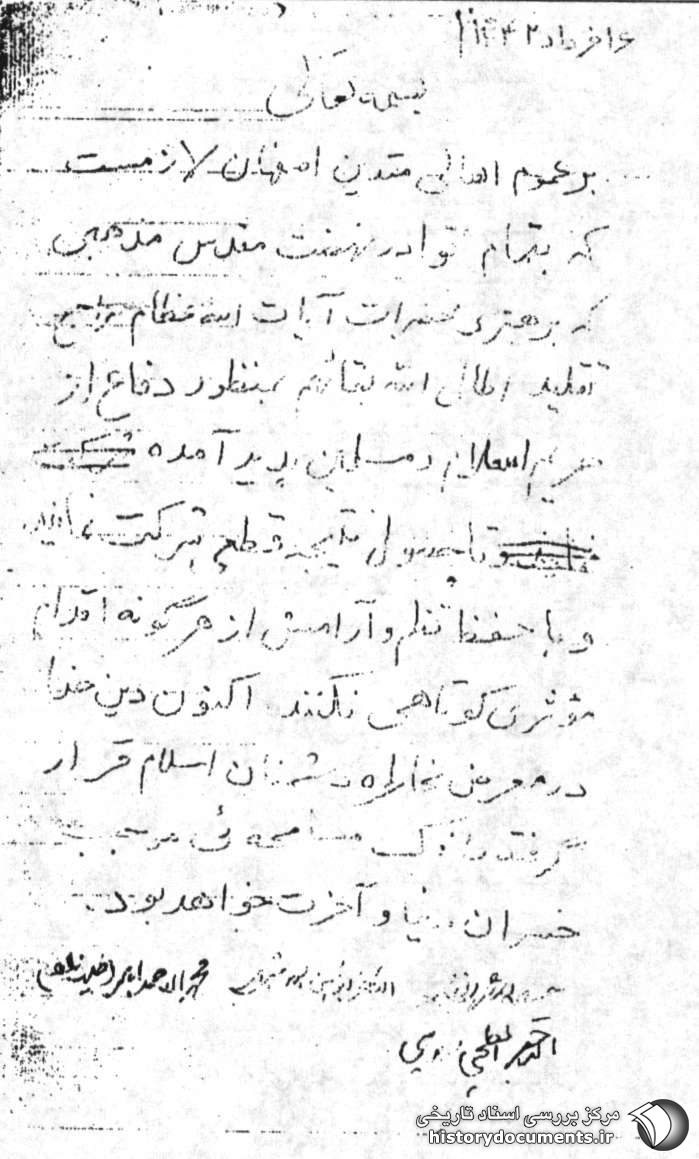 ۱۶ خرداد ۱۳۴۲
بسمه تعالی
بر عموم اهالی متدین اصفهان لازمست
که بتمام قوا در نهضت مقدس مذهبی
که برهبری حضرات آیات الله عظام مراجع
تقلید اطال الله بقائهم بمنظور دفاع از
حریم اسلام و مسلمین پدید آمده شرکت
و تا حصول نتیجه قطعی شرکت نمایند
و با حفظ نظم و آرامش از هرگونه اقدام
مؤثری کوتاهی نکنند اکنون دین خدا
در معرض مخاطره دشمنان اسلام قرار
گرفته و اندک مسامحه ئی موجب
خسران دنیا و آخرت خواهد بود.
مرکز بررسی اسناد تاریخی
historydocuments.ir